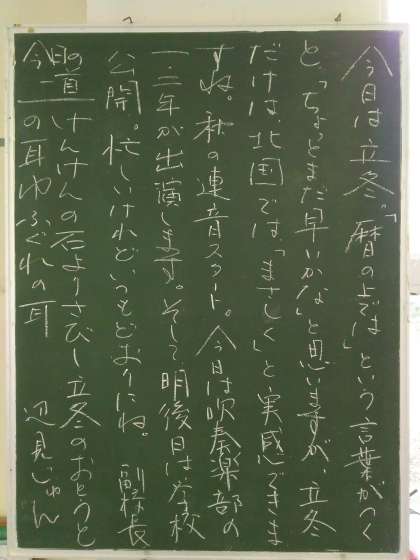 今日は立冬。「暦の上では」という言葉がつく
と、「ちょっとまだ早いかな」と思いますが、立冬
だけは北国では、「まさしく」と実感できま
すね。秋の連音スタート。今日は吹奏楽部の
一・二年が出演します。そして、明後日は学校
公開。忙しいけれどいつもどおりにね。 副校長
今日の一首 けんけんの石よりさびし立冬のおとうと
の耳ゆふぐれの耳 辺見じゅん